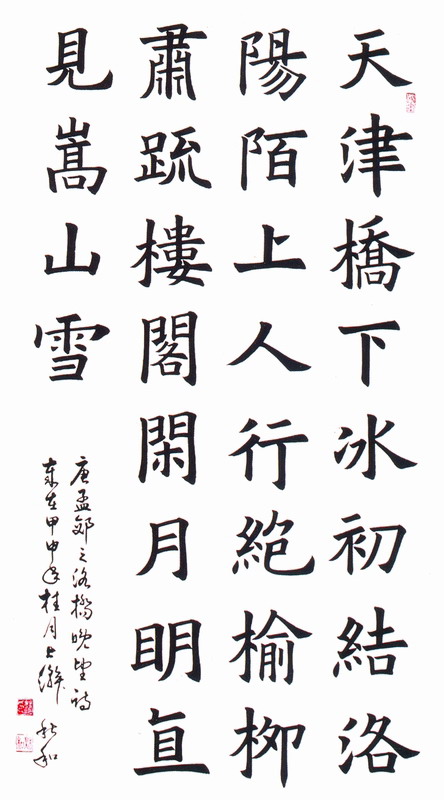 天津橋下冰初結洛
陽陌上人行絶榆柳
肅疏樓閣閑月明直
見嵩山雪
唐孟郊之洛橋晚望詩
歲在甲申年桂月上澣
秋和